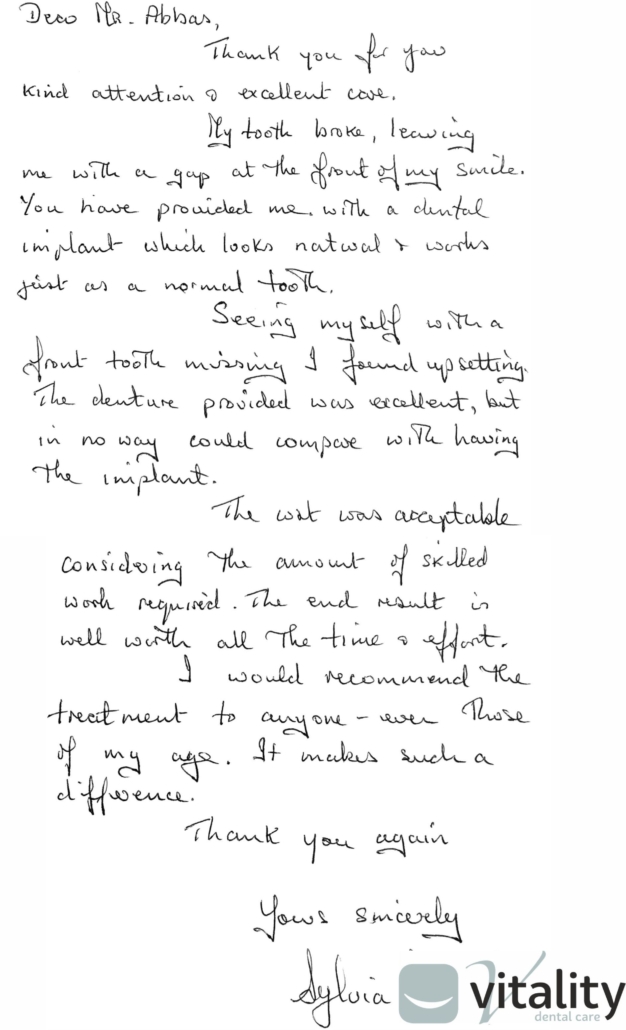 Dear Mr. Abbas,
Thank you for your
kind attention & excellent care.
My tooth broke, leaving
me with a gap at the front of my smile.
You have provided me with a dental
implant which looks natural & works
just as a normal tooth.
Seeing myself with a
front tooth missing I found upsetting.
The denture provided was excellent, but
in no way could compare with having
the implant.
The cost was acceptable
considering the amount of skilled
work required. The end result is
well worth all the time & effort.
I would recommend the
treatment to anyone - even those
of my age. It makes such a
difference.
Thank you again
Yours sincerely
Sylvia
vitality
dental care